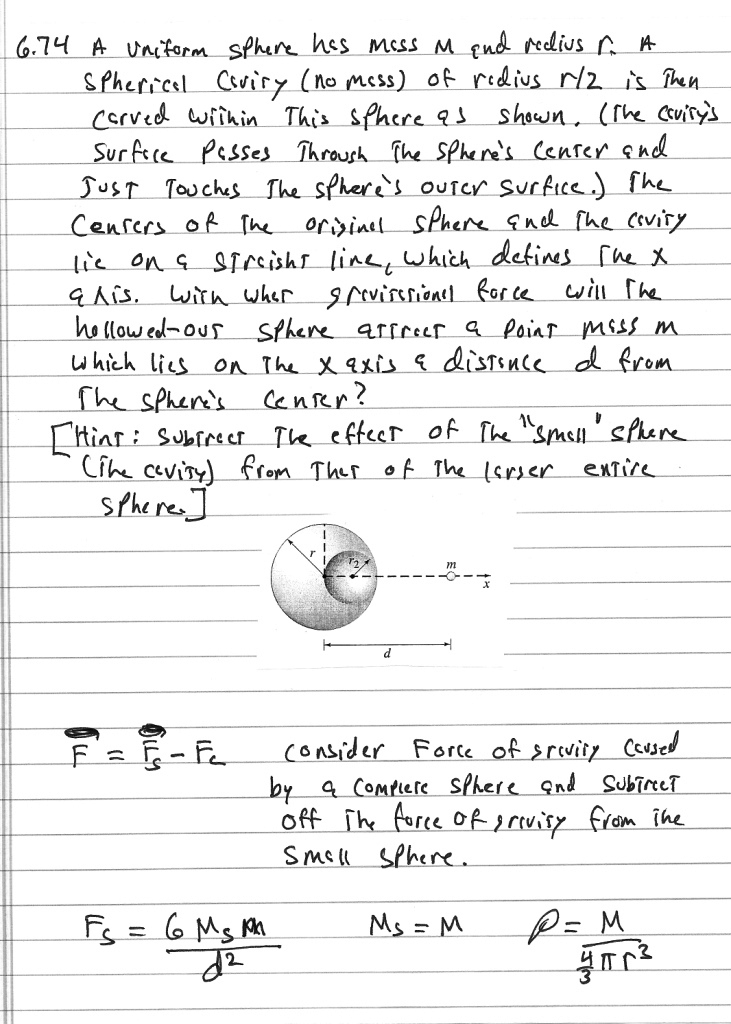 6.74 A uniform sphere has mass M and radius r. A
spherical cavity (no mass) of radius r/2 is then
carved within this sphere as shown. (The cavity's
surface passes through the sphere's center and
just touches the sphere's outer surface.) The
centers of the original sphere and the cavity
lie on a straight line, which defines the x
axis. With what gravitational force will the
hollowed-out sphere attract a point mass m
which lies on the x axis a distance d from
the sphere's center?
[Hint: Subtract the effect of the "small" sphere
(the cavity) from that of the larger entire
sphere.]
r
r/2
m
x
d
F = Fs - Fc consider Force of gravity caused
by a complete sphere and subtract
off the force of gravity from the
small sphere.
Fs = G Ms m / d² Ms = M ρ = M / 4/3 π r³